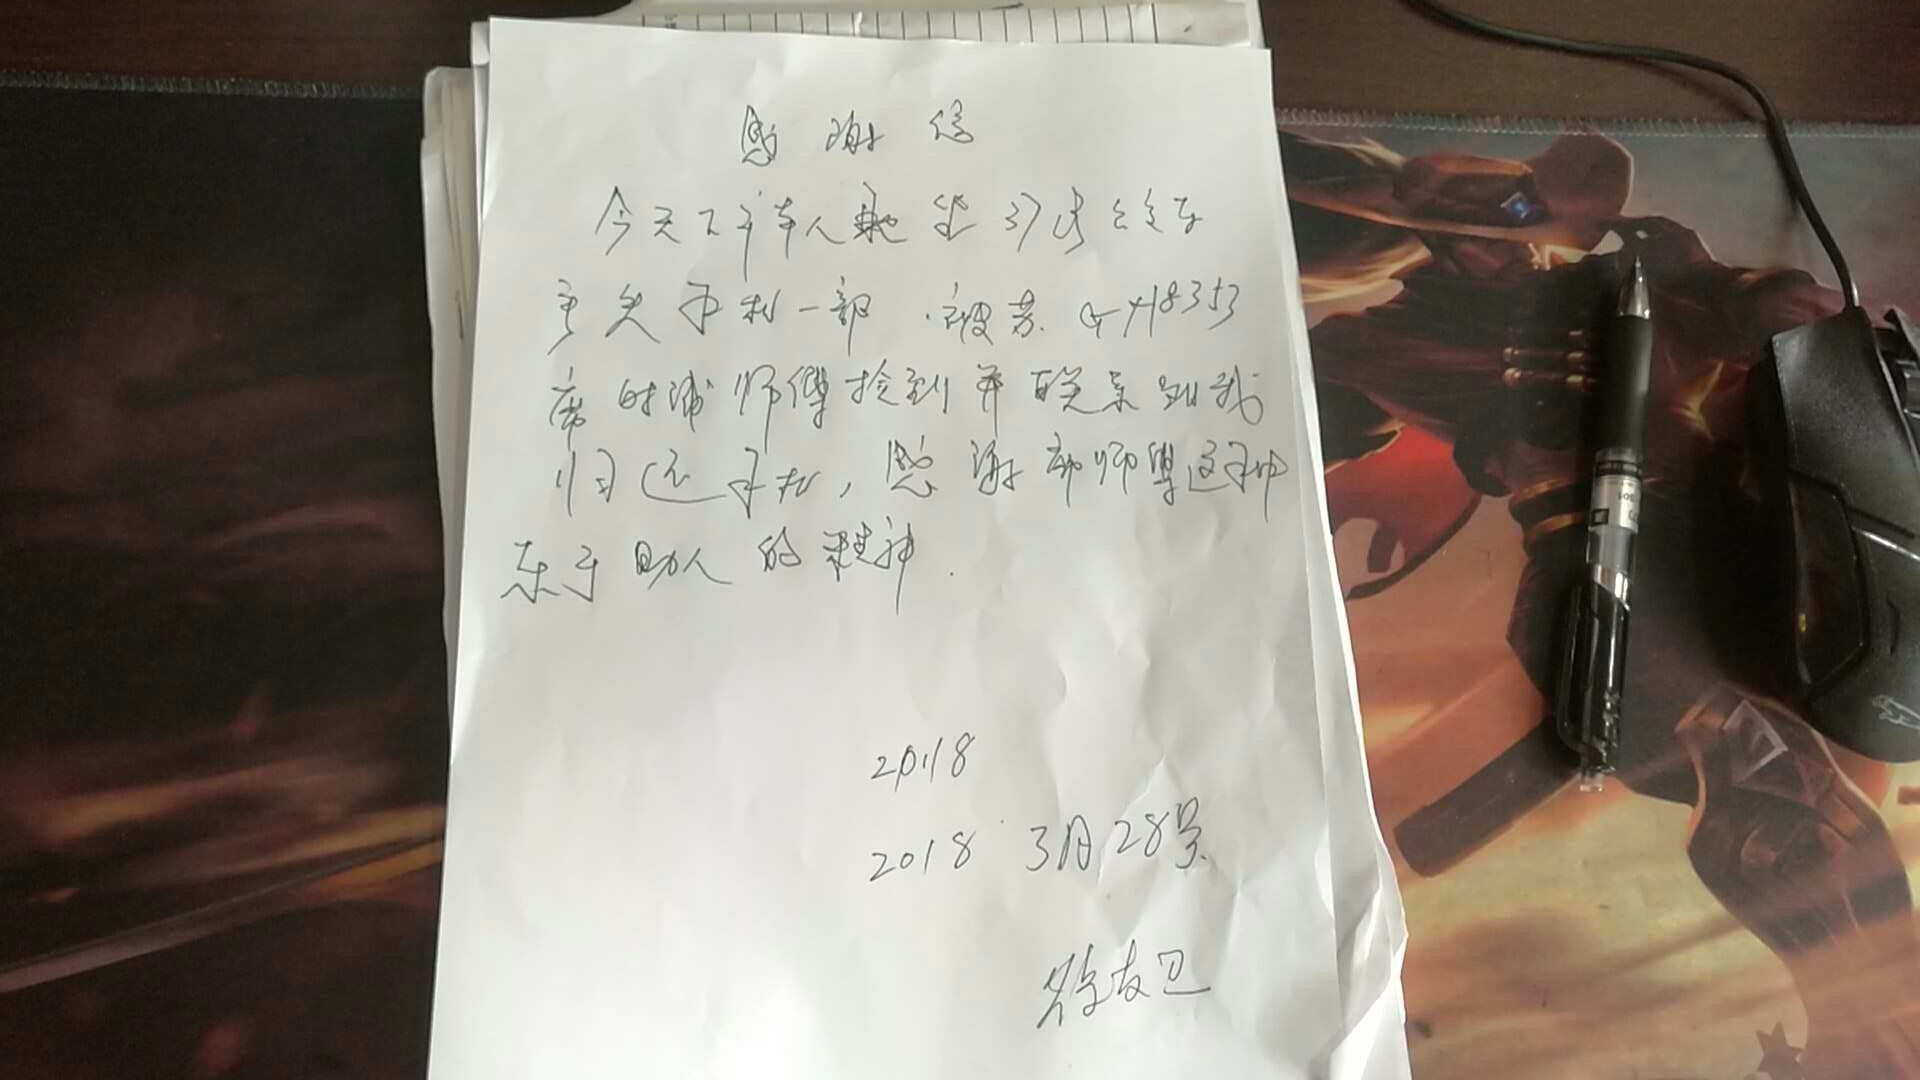 感谢信
今天下午本人乘坐37路公交车
丢失手机一部.被苏GX18353
席时浦师傅捡到并联系到我
归还手机,感谢席师傅这种
乐于助人的精神.
2018
2018 3月28号
徐友卫